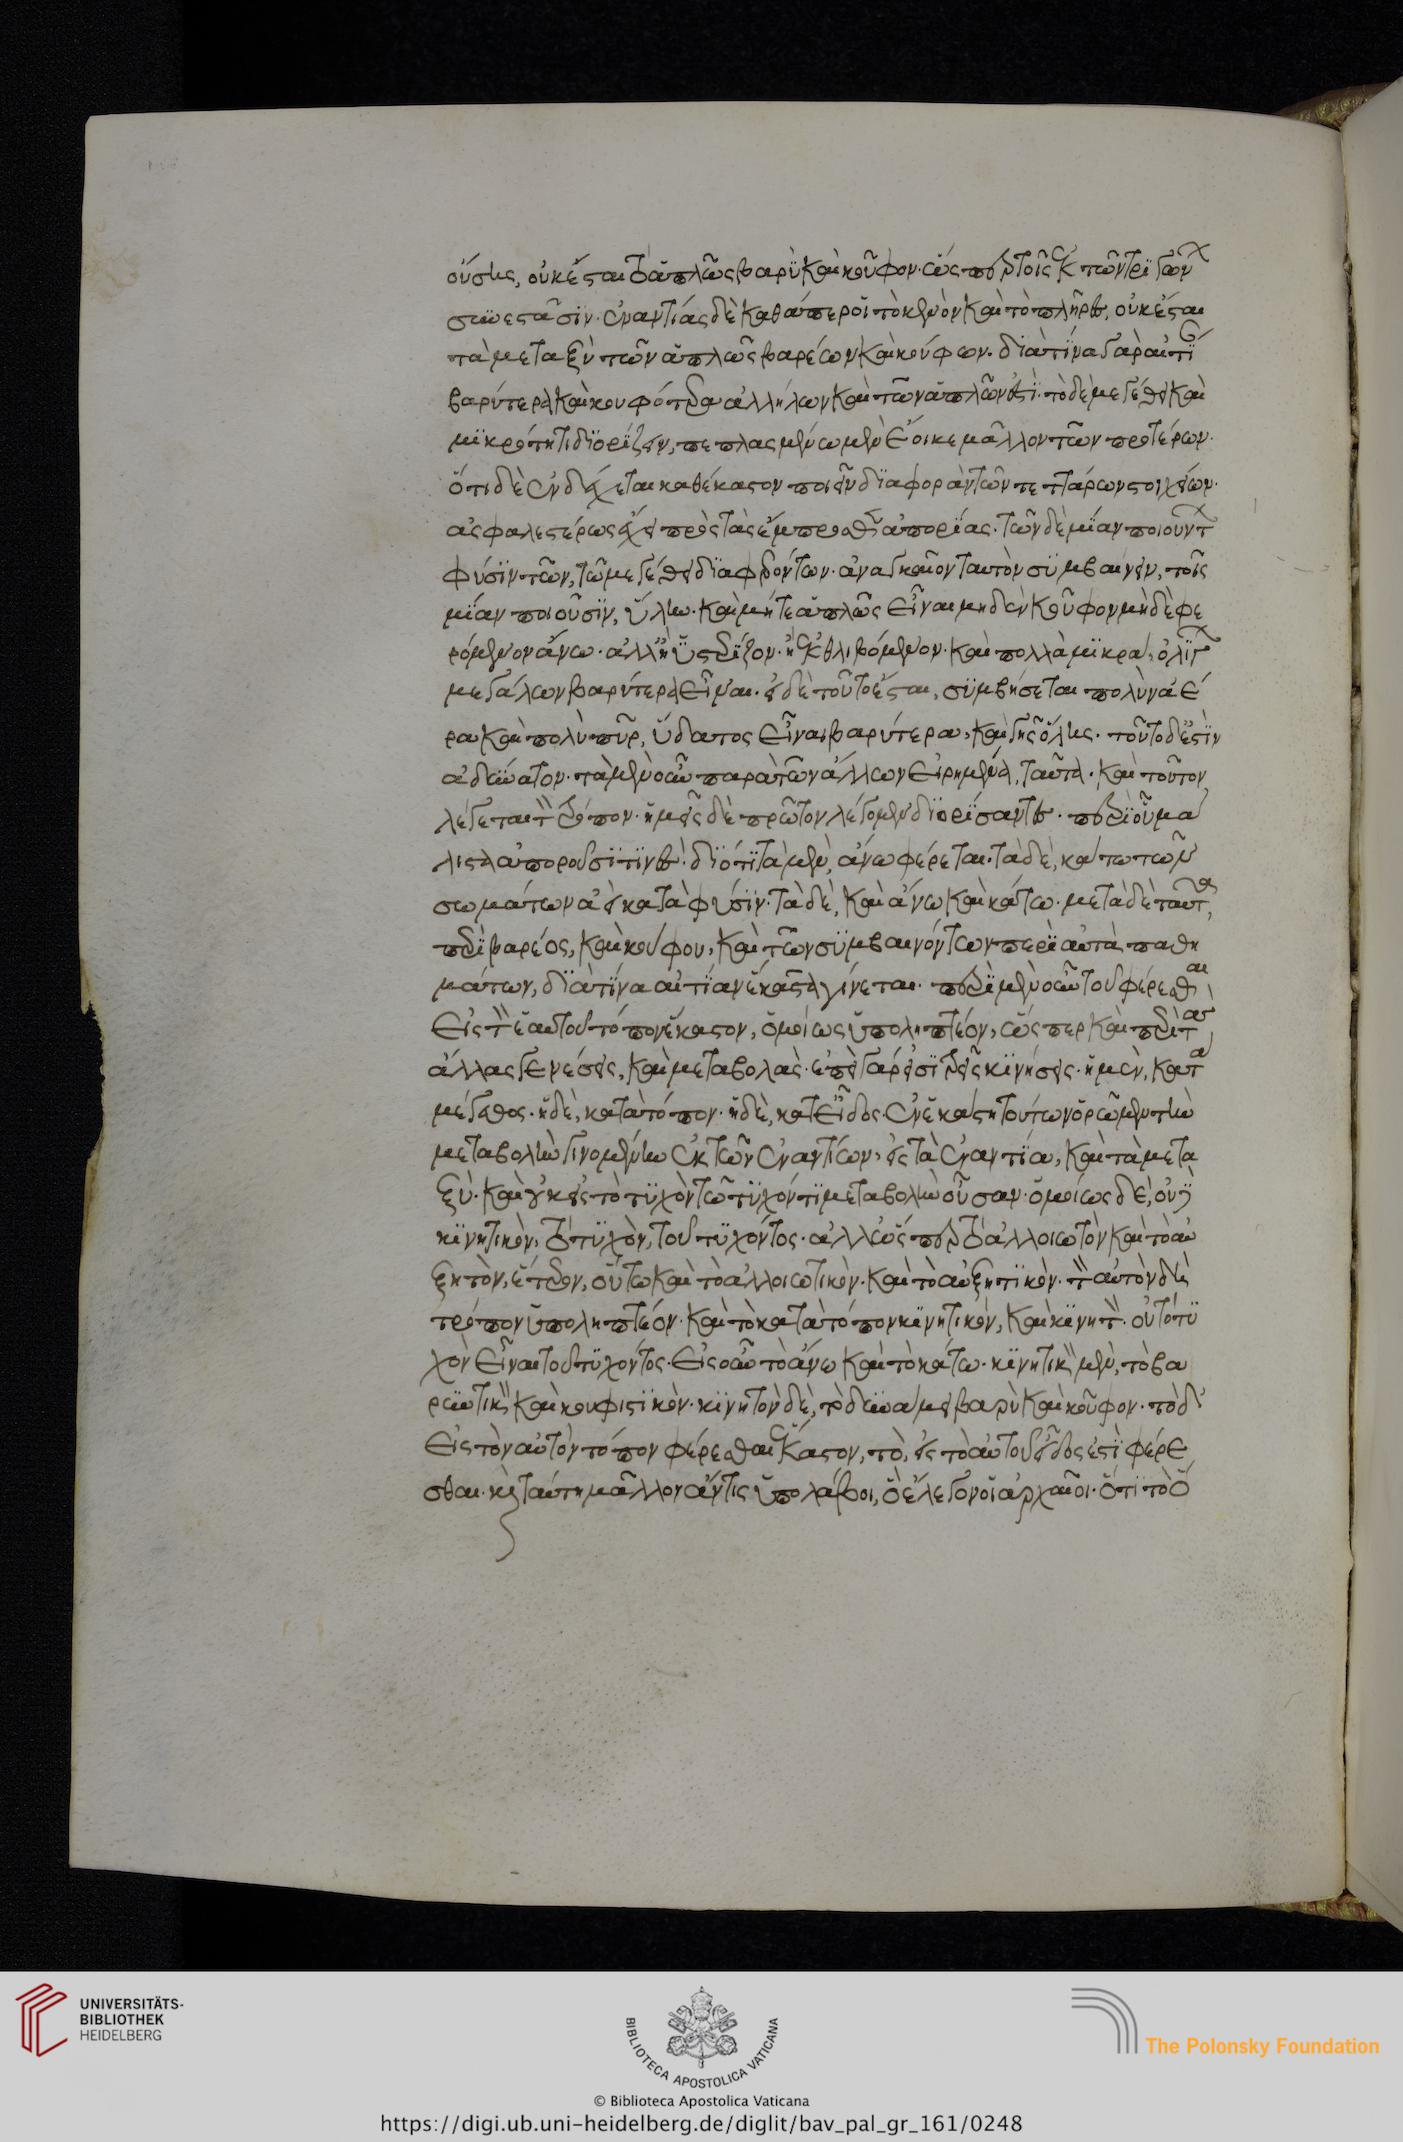 ούσης, οὐκ ἔσται τὸ ἁπλῶς βαρὺ καὶ κοῦφον. ὥσπερ τοῖς ἐκ τῶν τριγώνων
συνιστᾶσιν. ἐναντίας δὲ καθάπερ οἱ τὸ κενὸν καὶ τὸ πλῆρες, οὐκ ἔσται
τὰ μεταξὺ τῶν ἁπλῶς βαρέων καὶ κούφων. διὰ τίνα γὰρ αἰτίαν
βαρύτερα καὶ κουφότερα ἀλλήλων καὶ τῶν ἁπλῶν ἐστί. τὸ δὲ μεγέθει καὶ
μικρότητι διορίζειν, πεπλασμένω μὲν ἔοικε μᾶλλον τῶν προτέρων.
ὅτι δὲ ἐνδέχεται καθέκαστον ποιεῖν διαφορὰν τῶν τεττάρων στοιχείων.
ἀσφαλεστέρως ἔχει πρὸς τὰς ἔμπροσθεν ἀπορίας. τῶν δὲ μίαν ποιούντων
φύσιν τῶν, τῶ μεγέθει διαφερόντων. ἀναγκαῖον ταυτὸν συμβαίνειν, τοῖς
μίαν ποιοῦσιν, ὕλην. καὶ μήτε ἁπλῶς εἶναι μηδὲν κοῦφον μηδὲ φε
ρόμενον ἄνω. ἀλλ' ἢ ὑστερίζον. ἢ ἐκθλιβόμενον. καὶ πολλὰ μικρὰ, ὀλίγων
μεγάλων βαρύτερα εἶναι. εἰ δὲ τοῦτο ἔσται, συμβήσεται πολὺν ἀέ
ρα καὶ πολὺ πῦρ, ὕδατος εἶναι βαρύτερα, καὶ γῆς ὅλης. τοῦτο δ' ἐστὶν
ἀδύνατον. τὰ μὲν οὖν παρὰ τῶν ἄλλων εἰρημένα, ταῦτα. καὶ τοῦτον
λέγεται τὸν τρόπον. ἡμεῖς δὲ πρῶτον λέγομεν διορίσαντες. περὶ οὗ μά
λιστα ἀποροῦσί τινες. διότι τὰ μὲν, ἄνω φέρεται. τὰ δὲ, κάτω τῶν
σωμάτων ἀεὶ κατὰ φύσιν. τὰ δὲ, καὶ ἄνω καὶ κάτω. μετὰ δὲ ταῦτα,
περὶ βαρέος, καὶ κούφου, καὶ τῶν συμβαινόντων περὶ αὐτὰ παθη
μάτων, διὰ τίνα αἰτίαν ἕκαστα γίνεται. περὶ μὲν οὖν τοῦ φέρεσθαι
εἰς τὸν ἑαυτοῦ τόπον ἕκαστον, ὁμοίως ὑποληπτέον, ὥσπερ καὶ περὶ τὰς
ἄλλας γενέσεις, καὶ μεταβολάς. ἐπεὶ γάρ εἰσι τρεῖς κινήσεις. ἡ μὲν, κατὰ
μέγεθος. ἡ δὲ, κατὰ τόπον. ἡ δὲ, κατ' εἶδος. ἐν ἑκάστη τούτων ὁρῶμεν τὴν
μεταβολὴν γινομένην ἐκ τῶν ἐναντίων, εἰς τὰ ἐναντία, καὶ τὰ μετα
ξύ. καὶ οὐκ εἰς τὸ τυχὸν τῶ τυχόντι μεταβολὴν οὖσαν. ὁμοίως δὲ, οὐδὲ
κινητικὸν, τὸ τυχὸν, τοῦ τυχόντος. ἀλλ' ὥσπερ τὸ ἀλλοιωτὸν καὶ τὸ αὐ
ξητὸν, ἕτερον, οὕτω καὶ τὸ ἀλλοιωτικὸν. καὶ τὸ αὐξητικὸν. τὸν αὐτὸν δὴ
τρόπον ὑποληπτέον. καὶ τὸ κατὰ τόπον κινητικὸν, καὶ κινητὸν. οὐ τὸ τυ
χὸν εἶναι τοῦ τυχόντος. εἰς οὖν τὸ ἄνω καὶ τὸ κάτω. κινητικὸν μὲν, τὸ βα
ρυντικὸν καὶ κουφιστικόν. κινητὸν δὲ, τὸ δυνάμει βαρὺ καὶ κοῦφον. τὸ δ'
εἰς τὸν αὐτὸν τόπον φέρεσθαι ἕκαστον, τὸ, εἰς τὸ αὐτοῦ εἶδος ἐστὶ φέρε
σθαι. καὶ ταύτη μᾶλλον ἄν τις ὑπολάβοι, ὃ ἔλεγον οἱ ἀρχαῖοι. ὅτι τὸ ὅ
UNIVERSITÄTS-
BIBLIOTHEK
HEIDELBERG
BIBLIOTECA APOSTOLICA VATICANA
The Polonsky Foundation
© Biblioteca Apostolica Vaticana
https://digi.ub.uni-heidelberg.de/diglit/bav_pal_gr_161/0248